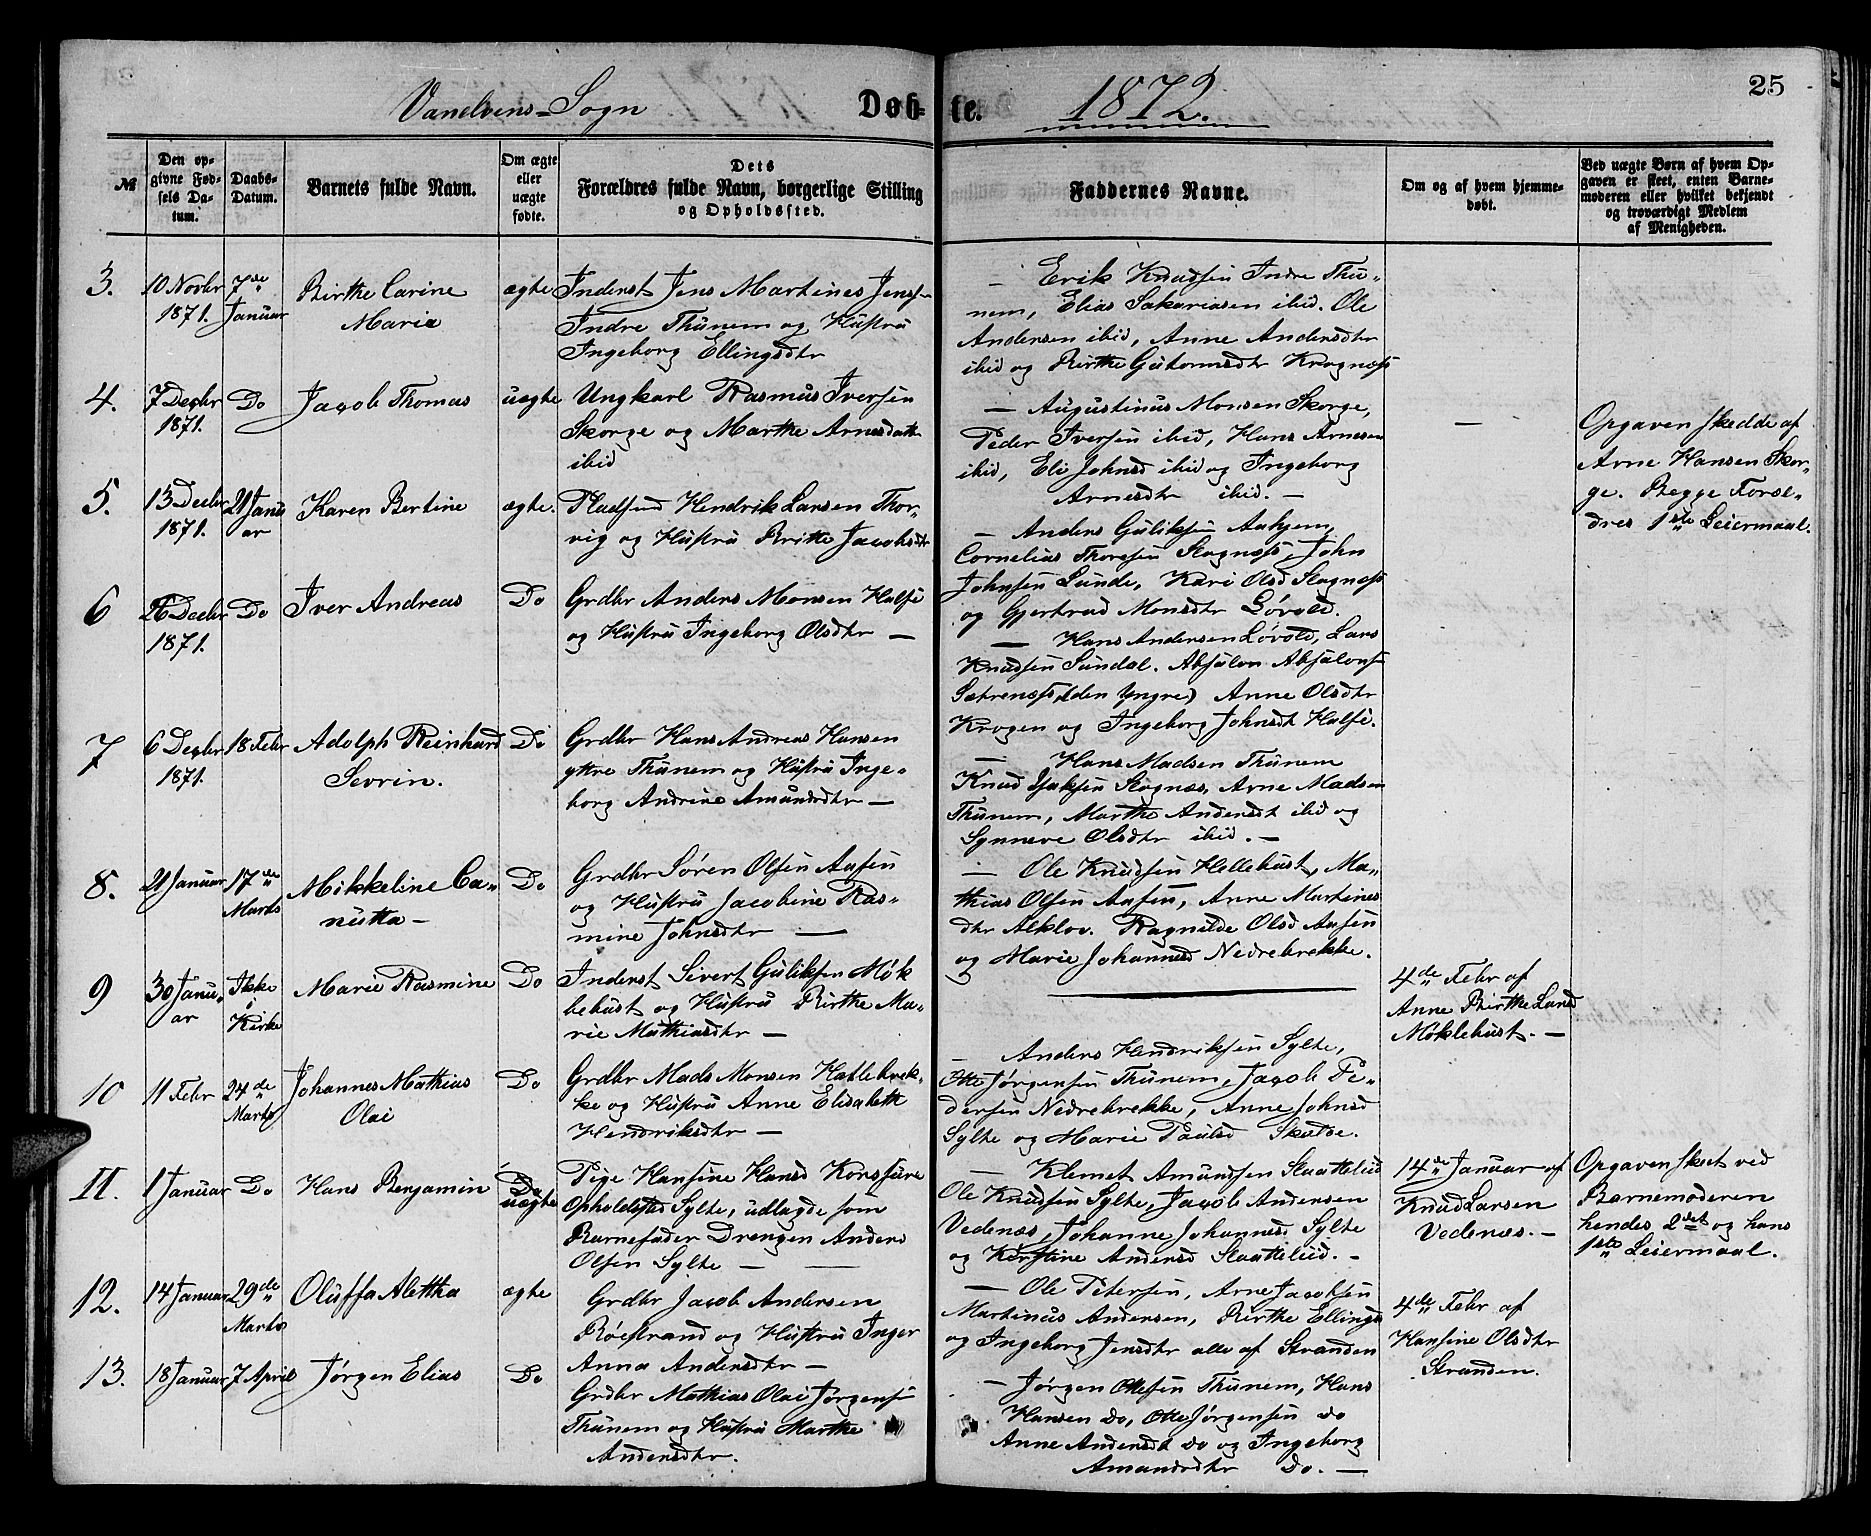 Vanelvens-Sogn Døb-te. 1872. 25
№
Den op-
givne Fød-
sels Da-
tum.
Daabs-
Datum.
Barnets fulde Navn.
Om ægte
eller
uægte
fødte.
Dets
Forældres fulde Navn, borgerlige Stilling
og Opholdssted.
Faddernes Navne.
Om og af hvem hjemme-
døbt.
Ved uægte Børn af hvem Op-
gaven er skeet, enten Barne-
moderen eller hvilket bekjendt
og troværdigt Medlem
af Menigheden.
3.
10 Novbr
1871.
7de
Januar
Birthe Carine
Marie
ægte
Inderst Jens Martines Jenss-
Indre Thunem og Hustru
Ingeborg Ellingsdtr
— Erik Knudsen Indre Thu-
nem, Elias Sakariasen ibid. Ole
Andersen ibid, Anne Andersdtr
ibid og Birthe Gutormsdtr Krognæss
4.
7 Decbr
1871.
Do
Jacob Thomas
uægte
Ungkarl Rasmus Iversen
Skorge og Marthe Arnesdatter
ibid
— Augustinus Monsen Skorge,
Peder Iversen ibid, Hans Arnesen
ibid, Eli Johnsd ibid og Ingeborg
Arnesdtr ibid. —
—
Opgaven skedde af
Arne Hansen Skor-
ge. Begge Foræl-
dres 1ste Leiermaal.
5.
13 Decbr
1871.
21 Janu
ar
Karen Bertine
ægte.
Pladsmd Hendrik Larsen Thor-
vig og Hustru Britte Jacobsdtr
— Anders Guliksen Aahjem,
Cornelius Thoresen Slagnæss, John
Johnsen Lunde, Kari Olsd Slagnæss
og Gjertrud Monsdtr Løvold.
6
26 Decbr
1871.
Do
Iver Andreas
Do
Grdbr Anders Monsen Halse
og Hustru Ingeborg Olsdtr —
— Hans Andersen Løvold, Lars
Knudsen Sundal. Absalon Absalons-
Sætrenæss (den Yngre) Anne Olsdtr
Krogen og Ingeborg Johnsdt Halse.
7
6 Decbr
1871.
18 Febr
Adolph Reinhard
Sevrin.
Do
Grdbr Hans Andreas Hansen
yttre Thunem og Hustru Inge-
borg Andrine Amundsdtr —
— Hans Madsen Thunem
Knud Isaksen Slagnæs, Arne Madsen
Thunem, Marthe Andersdt ibid og
Synneve Olsdtr ibid. —
8.
21 Januar
17de
Marts
Mikkeline Ca-
nutta —
Do
Grdbr Søren Olsen Aasen
og Hustru Jacobine Ras-
mine Johnsdtr —
— Ole Knudsen Hellebust, Ma-
thias Olsen Aasen, Anne Martines
dtr Alklov. Ragnilde Olsd Aasen
og Marie Johannesd Nedrebrekke.
9
30 Janu-
ar
Ikke
i
Kirke
Marie Rasmine
Do
Inderst Sivert Guliksen Møk
lebust og Hustru Birthe Ma-
rie Mathiasdtr —
4de Febr af
Anne Birthe Larsd
Møklebust. —
10
11 Febr
24de
Marts
Johannes Mathias
Olai
Do
Grdbr Mads Monsen Hatlebrek-
ke og Hustru Anne Elisabeth
Hendriksdtr —
— Anders Hendriksen Sylte,
Otte Jørgensen Thunem, Jacob Pe-
dersen Nedrebrekke, Anne Johnsd
Sylte og Marie Paulsd Skatde.
11.
1 Januar
Do
Hans Benjamin
Do
uægte
Pige Hansine Hansd Korssure
Opholdssted Sylte, udlagde som
Barnefader Drengen Anders
Olsen Sylte —
— Klemet Amundsen Slaattelid
Ole Knudsen Sylte, Jacob Andersen
Vedenæs, Johanne Johannesd Sylte
og Kirstine Andersd Slaattelid. —
14de Januar af
Knud Larsen
Vedenæs. —
Opgaven skeet ved
Barnemoderen
hendes 2det og hans
1ste Leiermaal.
12.
14 Januar
29de
Marts
Oluffa Alettha
ægte
Grdbr Jacob Andersen
Røestrand og Hustru Inger
Anna Andersdtr —
— Ole Petersen, Arne Jacobsen
Martinus Andersen, Birthe Ellingsd
og Ingeborg Jensdtr alle af Stranden
4de Febr af
Hansine Olsdtr
Stranden.
13.
18 Januar
7 April
Jørgen Elias
Do
Grdbr Mathias Olai Jørgense
Thunem og Hustru Marthe
Andersdtr.
— Jørgen Ottesen Thunem, Hans
Hansen Do, Otte Jørgensen Do
Anne Andersdt Do og Ingeborg
Amandsdtr Do. —